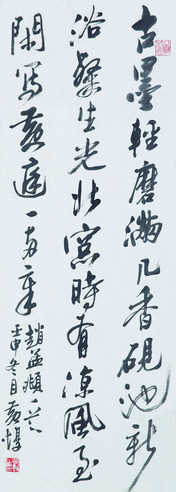 古墨輕磨滿几香硯池新
浴粲生光北窓時有涼風至
閑寫黃庭一兩章
趙孟頫一首
壬申冬日黃惇